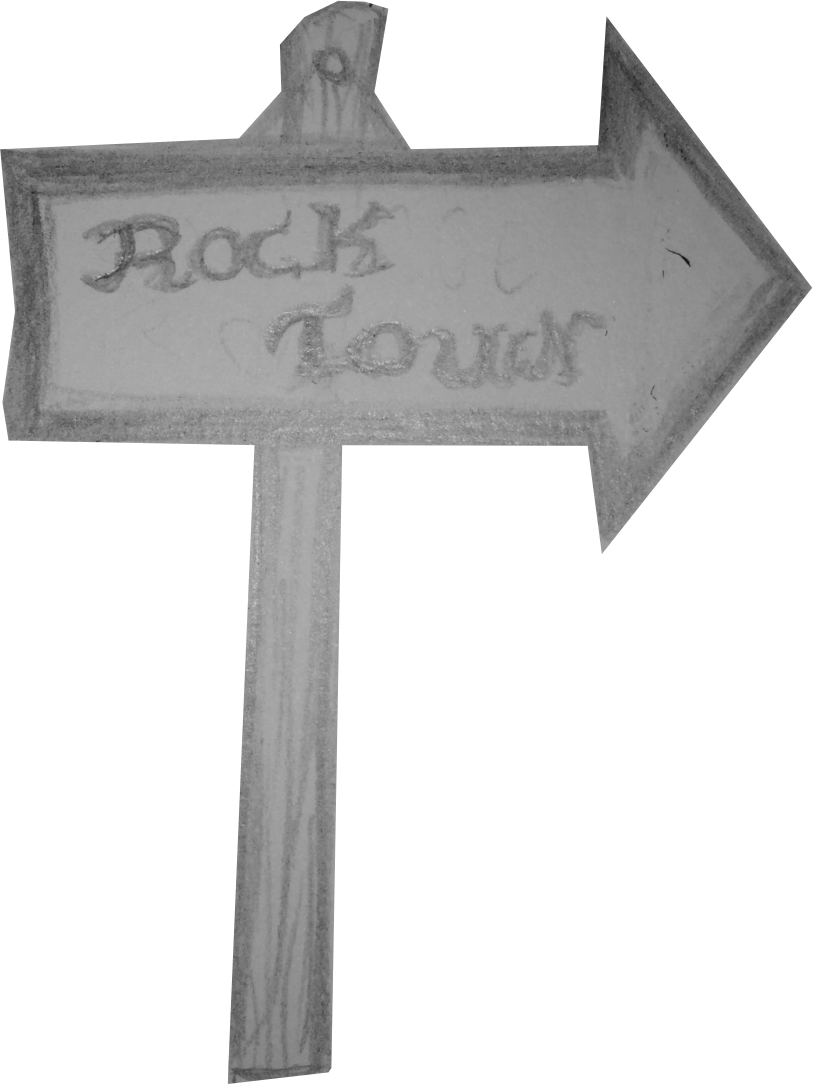 Rock
Town